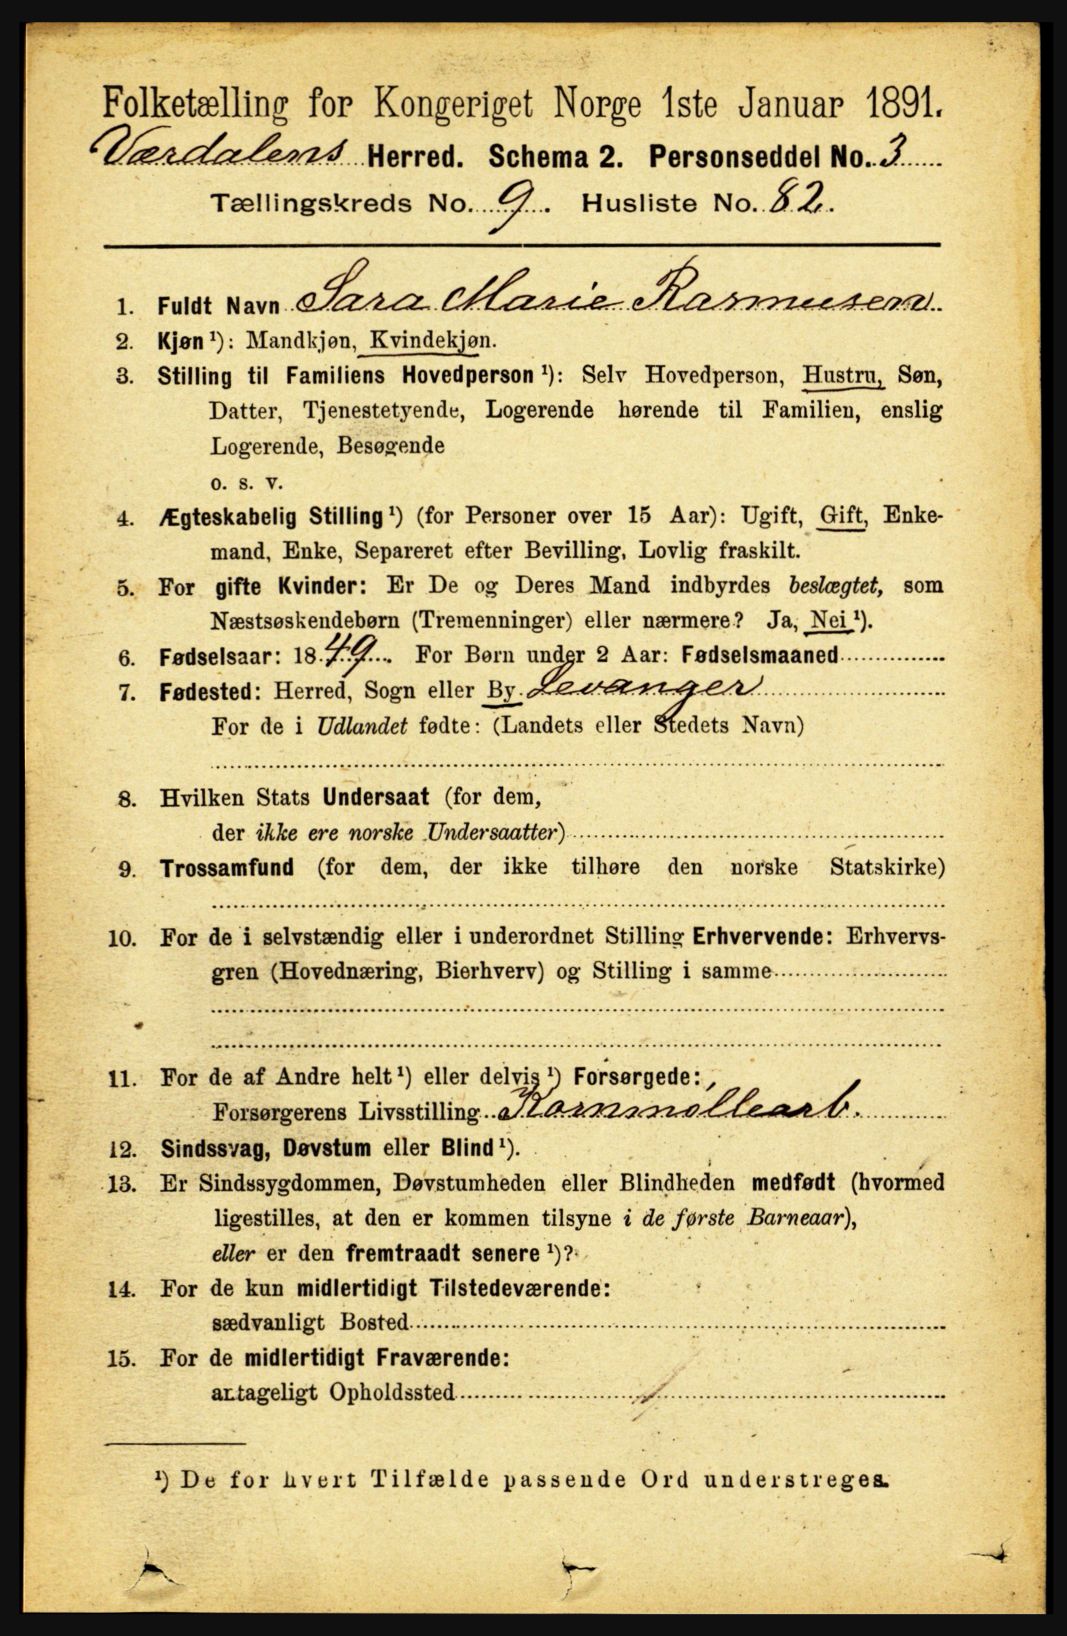 Folketælling for Kongeriget Norge 1ste Januar 1891.
Værdalens Herred. Schema 2. Personseddel No. 3
Tællingskreds No. 9. Husliste No. 82.
1. Fuldt Navn Sara Marie Rasmusen
2. Kjøn ¹): Mandkjøn, Kvindekjøn.
3. Stilling til Familiens Hovedperson ¹): Selv Hovedperson, Hustru, Søn,
Datter, Tjenestetyende, Logerende hørende til Familien, enslig
Logerende, Besøgende
o. s. v.
4. Ægteskabelig Stilling ¹) (for Personer over 15 Aar): Ugift, Gift, Enke-
mand, Enke, Separeret efter Bevilling, Lovlig fraskilt.
5. For gifte Kvinder: Er De og Deres Mand indbyrdes beslægtet, som
Næstsøskendebørn (Tremenninger) eller nærmere? Ja, Nei ¹).
6. Fødselsaar: 1849. For Børn under 2 Aar: Fødselsmaaned
7. Fødested: Herred, Sogn eller By. Levanger
For de i Udlandet fødte: (Landets eller Stedets Navn)
8. Hvilken Stats Undersaat (for dem,
der ikke ere norske Undersaatter)
9. Trossamfund (for dem, der ikke tilhøre den norske Statskirke)
10. For de i selvstændig eller i underordnet Stilling Erhvervende: Erhvervs-
gren (Hovednæring, Bierhverv) og Stilling i samme
11. For de af Andre helt ¹) eller delvis ¹) Forsørgede:
Forsørgerens Livsstilling Kornmøllearb.
12. Sindssvag, Døvstum eller Blind ¹).
13. Er Sindssygdommen, Døvstumheden eller Blindheden medfødt (hvormed
ligestilles, at den er kommen tilsyne i de første Barneaar),
eller er den fremtraadt senere ¹)?
14. For de kun midlertidigt Tilstedeværende:
sædvanligt Bosted
15. For de midlertidigt Fraværende:
antageligt Opholdssted
¹) De for hvert Tilfælde passende Ord understreges.